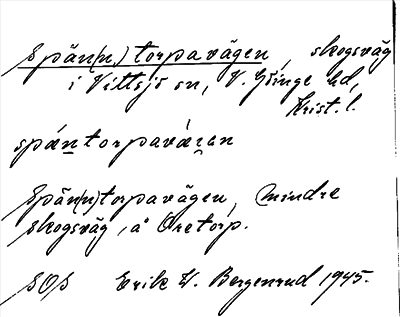 Spän(n)torpavägen, skogsväg
i Vittsjö sn, V. Göinge hd,
Krist. l.
spántorpavà̱gen
Spän(n)torpavägen, mindre
skogsväg, å Oretorp.
SOS Erik W. Bergenrud 1945.